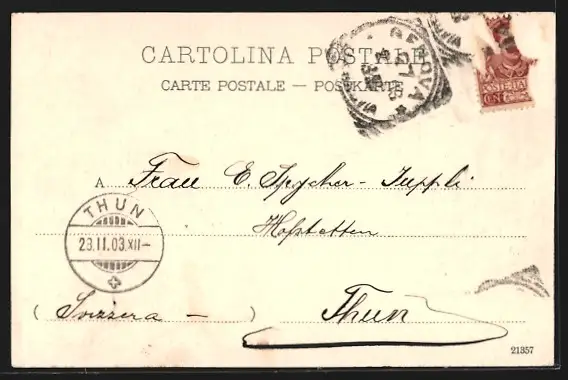 CARTOLINA POSTALE
CARTE POSTALE — POSTKARTE
GENOVA
POSTE ITAL
CENT
A Frau E. Spycher-Juppli
Hofstetten
THUN
23.II.03.XII-
(Svizzera - ) Thun
21357